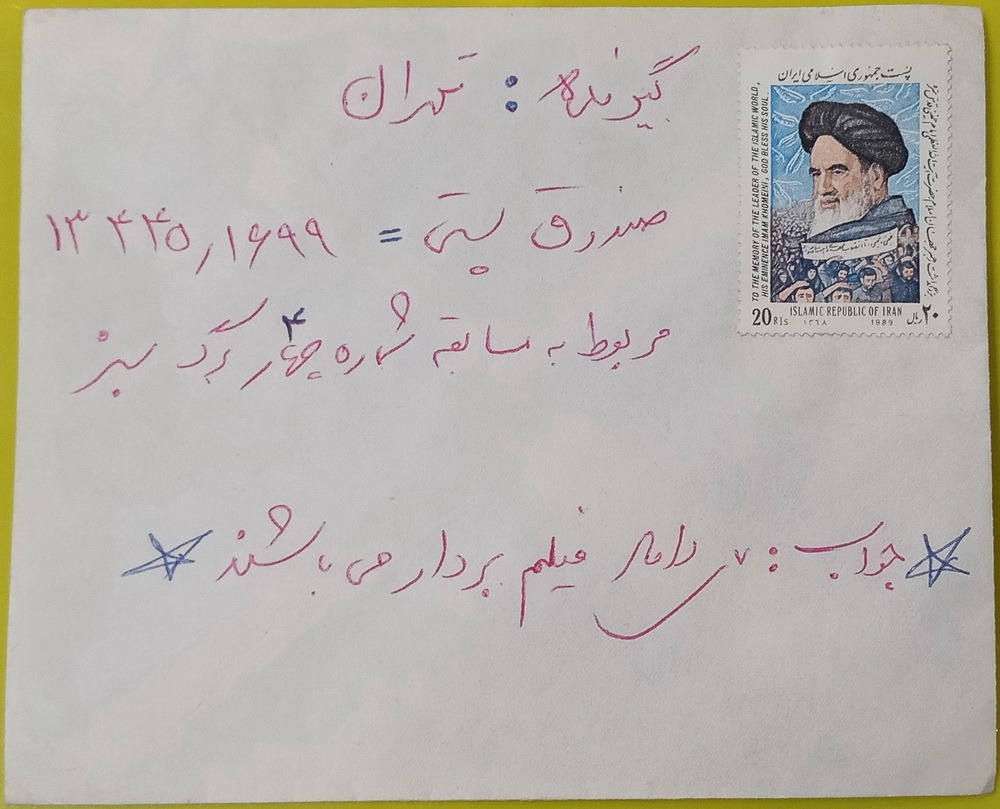 گیرنده : تهران
صندوق پستی = ۱۳۴۴۵٫۱۶۹۹
مربوط به مسابقه شماره چهار ۴ برگ سبز
جواب : فیلم بردار می باشند
پست جمهوری اسلامی ایران
TO THE MEMORY OF THE LEADER OF THE ISLAMIC WORLD,
HIS EMINENCE IMAM KHOMEINI, GOD BLESS HIS SOUL.
ISLAMIC REPUBLIC OF IRAN
20 RIS ۱۳۶۸ 1989 ۲۰ ریال